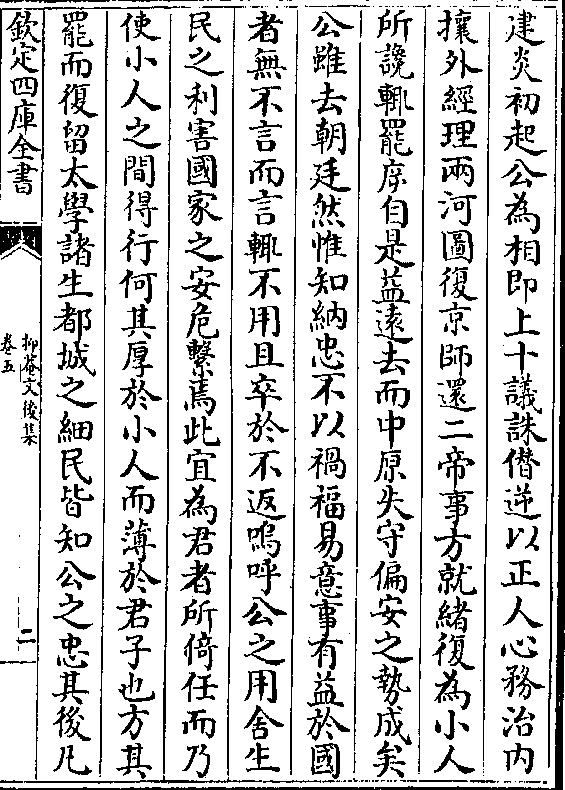 建炎初起公為相即上十議誅僣逆以正人心務治内
攘外經理兩河圖復京師還二帝事方就緒復為小人
所讒輒罷斥自是益逺去而中原失守偏安之勢成矣
公雖去朝廷然惟知納忠不以禍福易意事有益於國
者無不言而言輒不用且卒於不返嗚呼公之用舍生
民之利害國家之安危繫焉此宜為君者所倚任而乃
使小人之間得行何其厚於小人而薄於君子也方其
罷而復留太學諸生都城之細民皆知公之忠其後凡
欽定四庫全書
抑菴文後集
卷五
二